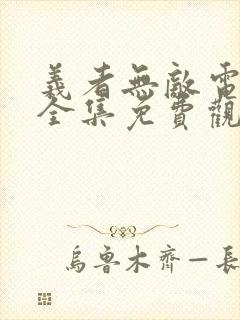 義者無敵電
全集免費觀
烏魯木齊—長